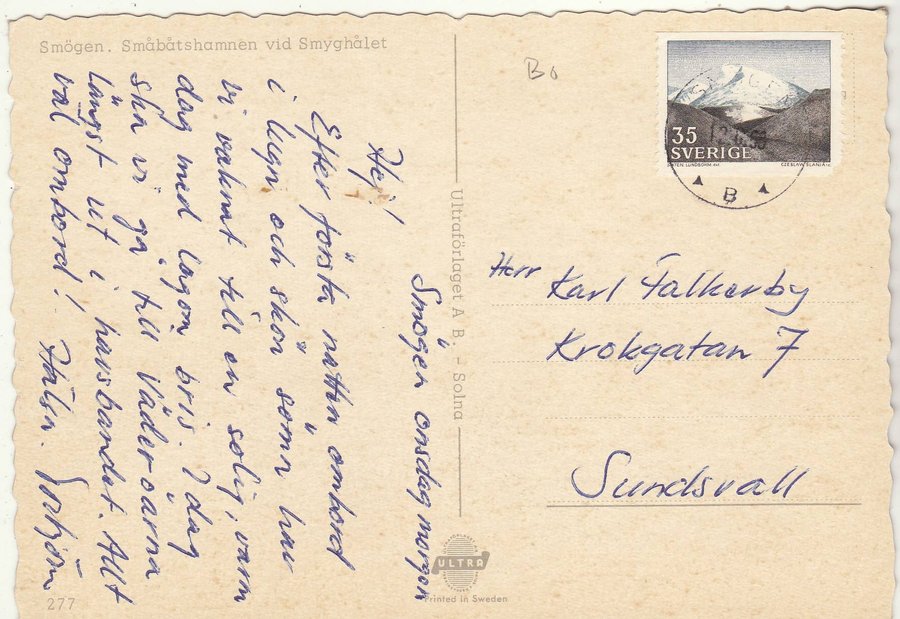 Smögen. Småbåtshamnen vid Smyghålet
Smögen onsdag morgon
Hej!
Efter första natten ombord
i lugn och skön sömn har
vi vaknat till en solig, varm
dag med lagom bris. I dag
ska vi gå till Väderöarna
längst ut i havsbandet. Allt
väl ombord! Hälsn.
277
Ultraförlaget A.B. - Solna
ULTRA
Printed in Sweden
Bo
35
SVERIGE
CZESLAW SLANIA
B
Herr Karl Falkerby
Krokgatan 7
Sundsvall